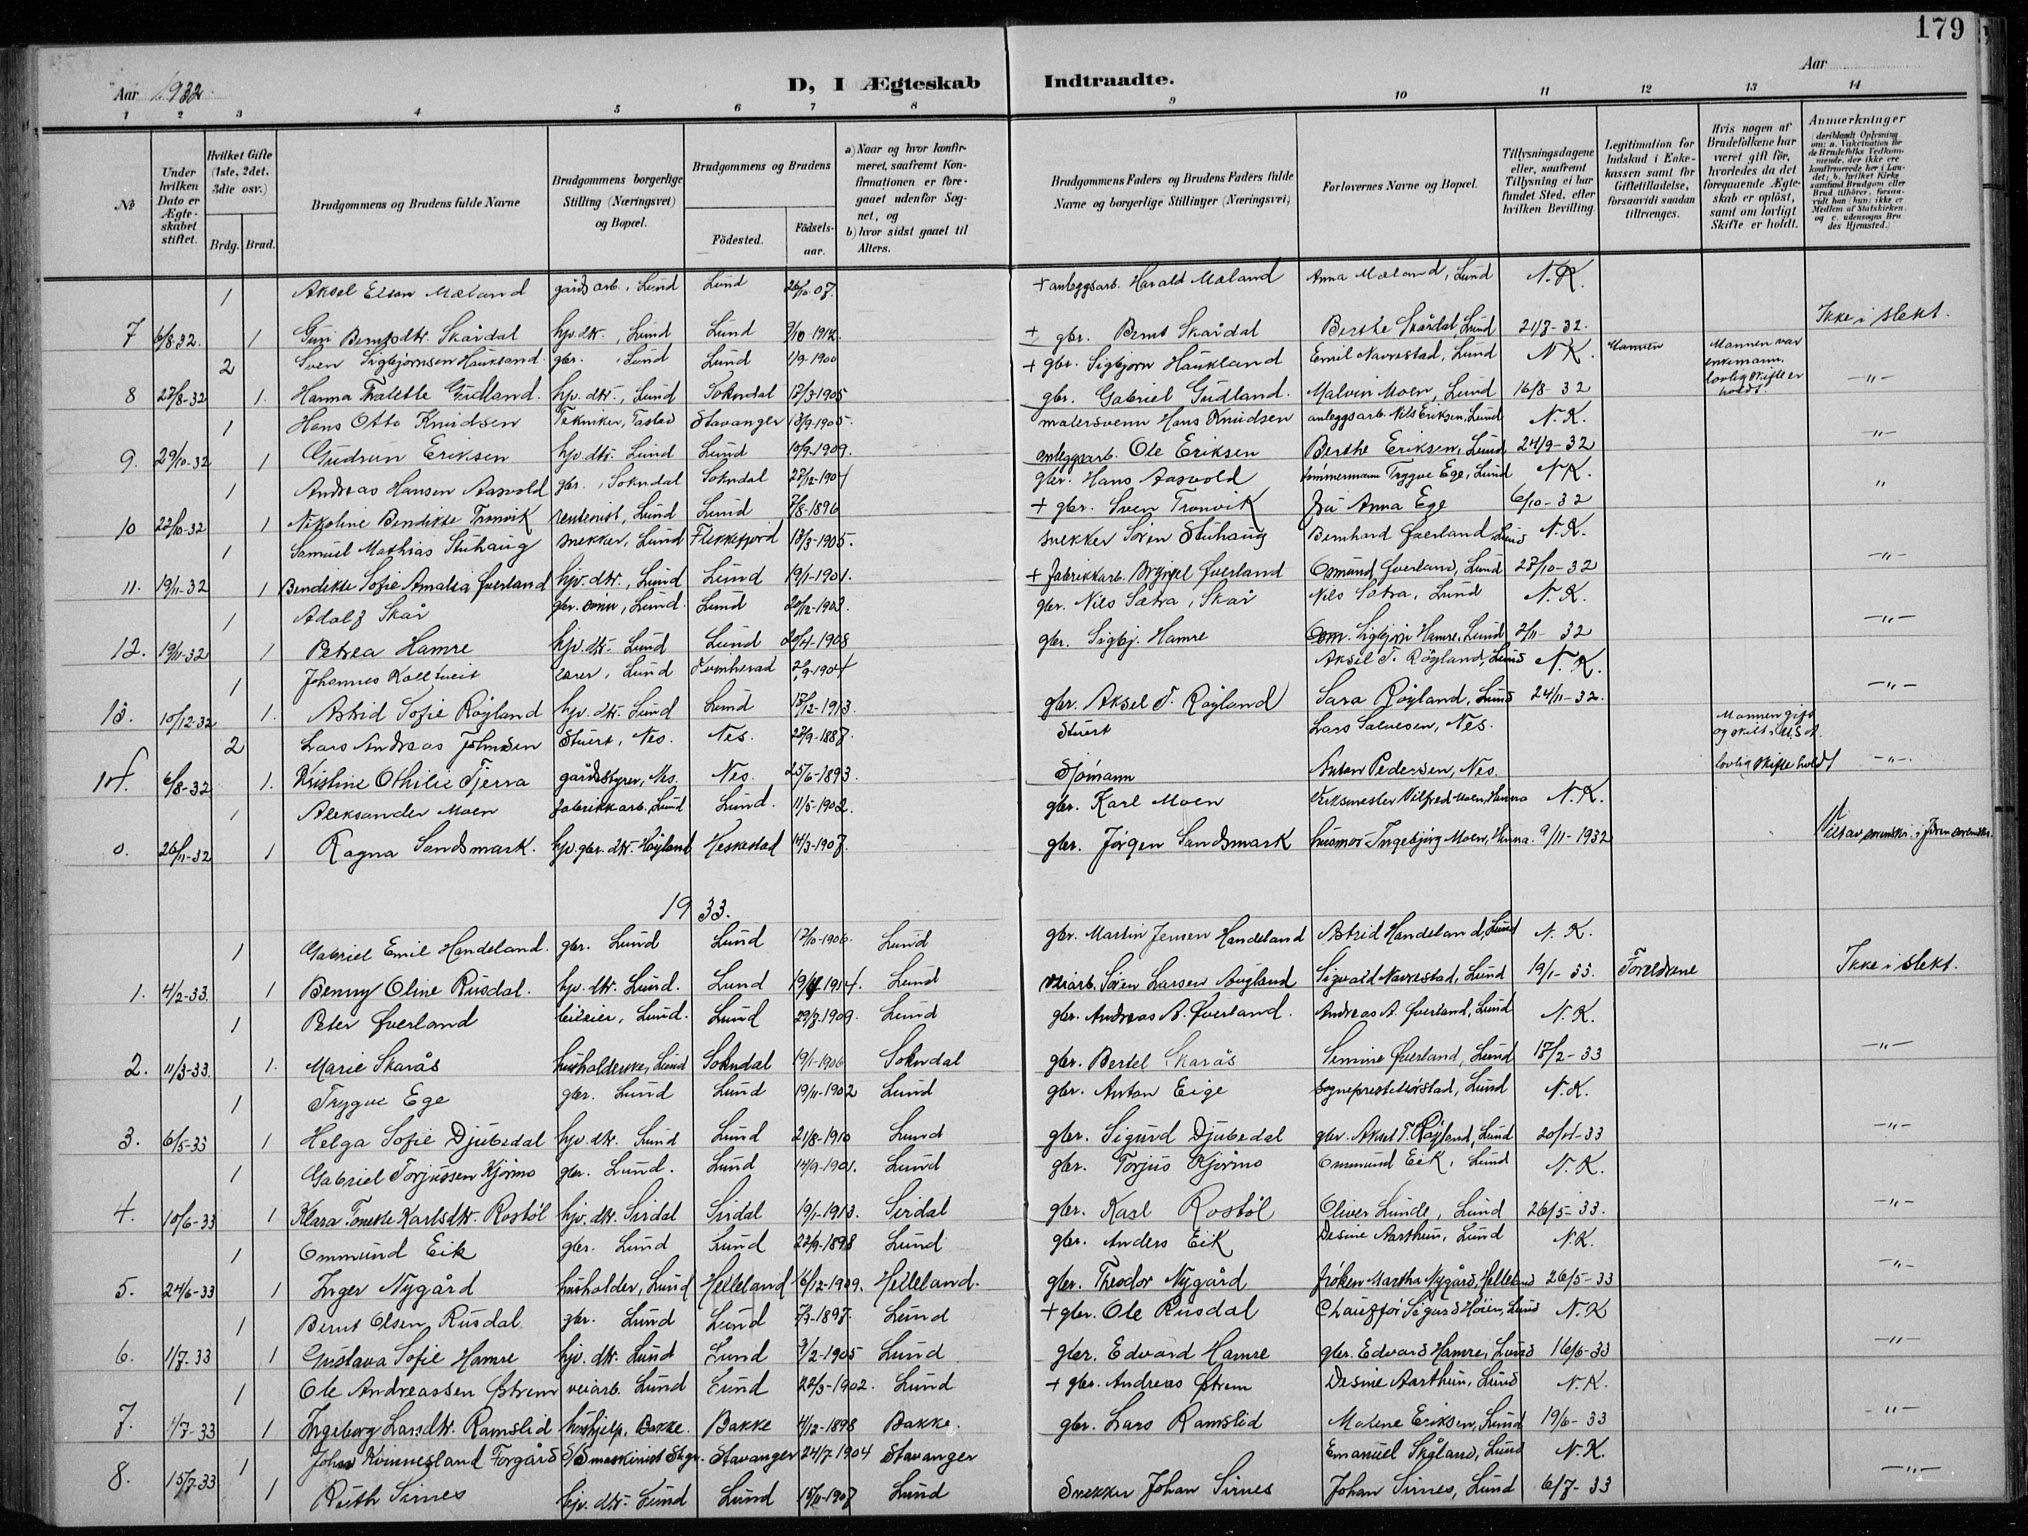 179
Aar 1932
D, I Ægteskab Indtraadte.
Aar
1 2 3 4 5 6 7 8 9 10 11 12 13 14
No
Under hvilken Dato er Ægteskabet stiftet.
Hvilket Gifte (1ste, 2det, 3die osv.)
Brdg. Brud.
Brudgommens og Brudens fulde Navne
Brudgommens borgerlige Stilling (Næringsvei) og Bopæl.
Brudgommens og Brudens
Födested. Födsels-aar.
a) Naar og hvor konfirmeret, saafremt Konfirmationen er foregaaet udenfor Sognet, og
b) hvor sidst gaaet til Alters.
Brudgommens Faders og Brudens Faders fulde Navne og borgerlige Stillinger (Næringsvei)
Forlovernes Navne og Bopæl.
Tillysningsdagene eller, saafremt Tillysning ei har fundet Sted, efter hvilken Bevilling.
Legitimation for Indskud i Enkekassen samt for Giftetilladelse, forsaavidt saadan tiltrenges.
Hvis nogen af Brudefolkene har været gift för, hvorledes da det foregaaende Ægteskab er oplöst, samt om lovligt Skifte er holdt.
Anmærkninger
1 Aksel Elson Mæland gårdsarb., Lund Lund 26/10-07. + anleggsarb. Harald Mæland Anna Mæland, Lund N.K.
7 6/8-32. 1 Guri Berntsdtr. Skårdal hjv. dtr., Lund Lund 9/10-1912 + gbr. Bernt Skårdal Berthe Skårdal, Lund 21/7-32. Ikke i slekt.
2 Sven Sigbjørnsen Haukland gbr., Lund Lund 1/9-1900 + gbr. Sigbjørn Haukland Emil Navrestad, Lund N.K. Mannen Mannen var enkemann, lovlig skifte er holdt.
8 27/8-32 1. Hanna Tralette Gudland. hjv. dtr., Lund Sokndal 17/3-1905 gbr. Gabriel Gudland. Malvin Moen, Lund 16/8-32 -"-
1 Hans Otto Knudsen Tekniker, Tasted Stavanger 13/9-1905. malersvenn Hans Knudsen anleggsarb. Nils Eriksen, Lund N.K.
9. 29/10-32 1 Gudrun Eriksen hjv. dtr. Lund Lund 10/9-1909. anleggsarb. Ole Eriksen Berthe Eriksen, Lund 24/9-32 -"-
1 Andreas Hansen Aasvold gbr., Sokndal Sokndal 27/12-1904 gbr. Hans Aasvold tømmermann Trygve Ege, Lund N.K.
10 22/10-32 1 Nikoline Bendikte Tronvik rentenist, Lund Lund 7/8-1896 + gbr. Sven Tronvik fru Anna Ege 6/10-32 "
1 Samuel Mathias Stuhaug snekker, Lund Flekkefjord 13/3-1905. snekker Sören Stuhaug Bernhard Øverland Lund N.K.
11. 19/11-32 1 Bendikte Sofie Amalia Øverland hjv. dtr., Lund Lund 19/1-1901. + fabrikkarb. Øverland Osmund Øverland, Lund 28/10-32 -"-
1 Adolf Skår gbr. sønn, Lund. Lund 20/12-1903. gbr. Nils Sætra, Skår Nils Sætra, Lund N.K.
12. 19/11-32 1 Petrea Hamre hjv. dtr. Lund Lund 20/4-1908 gbr. Sigbj. Hamre Sigbjørn Hamre, Lund 2/11-32 -"-
1 Johannes Kalltveit lærer, Lund Kvinherad 2/9-1904 Aksel T. Røyland, Lund N.K.
13. 10/12-32 1. Astrid Sofie Røyland hjv. dtr. Lund Lund 18/12-1913. gbr. Aksel T. Røyland Sara Røyland, Lund 24/11-32. -"-
2 Lars Andreas Johnsen Stuert, Nes. Nes. 27/9-1887 Stuert Lars Salvesen, Nes. Mannen gift og skilt i U.S.A.
14. 6/8-32 1. Kristine Othilie Tjersa gårdstyrer, Nes. Nes. 25/6-1893. Sjømann Anton Pedersen, Nes. lovlig skifte holdt -"-
1 Aleksander Moen fabrikkarb. Lund Lund. 11/5-1902. gbr. Karl Moen Verksmester Vilfred Moen, N.K.
0. 26/11-32 1 Ragna Sandsmark. hjv. gbr. dtr. Høyland Heskestad 14/3-1907. gbr. Jørgen Sandsmark husmor Ingebjørg Moen, 9/11-1932
1933.
1 Gabriel Emil Handeland. gbr. Lund Lund 17/10-1906. Lund gbr. Martin Jensen Handeland Astrid Handeland, Lund N.K.
1. 4/2-33. 1 Benny Oline Rusdal. hjv. dtr. Lund. Lund 19/4-1914. Lund veiarb. Sören Larsen Sigvald Navrestad, Lund 19/1-33. Foreldrene Ikke i slekt.
1 Peter Øverland bileier, Lund. Lund 29/7-1909. Lund gbr. Andreas A. Øverland. Andreas A. Øverland, Lund N.K.
2. 11/3-33. 1. Marie Skarås husholderske, Lund Sokndal 19/1-1906 Sokndal gbr. Bertel Skarås Semine Øverland, Lund 18/2-33 -"-
1 Trygve Ege gbr. Lund Lund 19/11-1902 Lund gbr. Anton Eige sogneprest Mørstad, Lund N.K.
3. 6/5-33 1 Helga Sofie Djubedal hjv. dtr. Lund Lund 21/8-1910 Lund gbr. Sigurd Djubedal gbr. Aksel T. Røyland, Lund 20/4-33 -"-
1 Gabriel Torjussen Kjørmo gbr. Lund. Lund 14/9-1901. Lund gbr. Torjus Kjørmo Ommund Eik, Lund N.K.
4. 10/6-33 1 Klara Tonette Karlsdtr. Rostøl hjv. dtr. Sirdal Sirdal 19/1-1913. Sirdal gbr. Karl Rostøl Oliver Lunde, Lund 26/5-33. -"-
1 Ommund Eik gbr. Lund Lund 22/9-1898 Lund gbr. Anders Eik Desine Aarthun, Lund N.K.
5. 24/6-33 1 Inger Nygård husholder, Lund Helleland 16/12-1909. Helleland. gbr. Theodor Nygård frøken Martha Nygård, Helleland 26/5-33 -"-
1 Bernt Olsen Rusdal gbr. Lund Lund 7/3-1897. Lund + gbr. Ole Rusdal Chauffør Sigurd Høien, Lund N.K
6. 1/7-33 1 Gustava Sofie Hamre hjv. dtr. Lund Lund 3/2-1905 Lund gbr. Edvard Hamre gbr. Edvard Hamre, Lund 16/6-33 -"-
1 Ole Andreassen Østrem veiarb. Lund Lund 22/3-1902. Lund + gbr. Andreas Østrem Desine Aarthun, Lund N.K.
7. 1/7-33 1 Ingeborg Larsdtr. Ramslid hushjelp, Bakke. Bakke 4/12-1898 Bakke. gbr. Lars Ramslid Malene Eriksen, Lund 19/6-33 -"-
1 John Kvinnesland Forgård D/S maskinist Stvgr. Stavanger 24/7 1904 Stavanger Emanuel Skåland, Lund N.K.
8. 15/7-33 1 Ruth Sirnes hjv. dtr. Lund Lund 15/11-1907 Lund Snekker Johan Sirnes Johan Sirnes, Lund 6/7-33 -"-